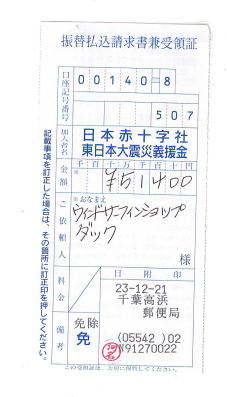 振替払込請求書兼受領証
口座記号番号
00140=8
507
加入者名
日本赤十字社
東日本大震災義援金
金額
千百十万千百十円
※
¥51400
ご依頼人
※おなまえ
ウィンドサーフィンショップ
ダック
様
料金
免除
免
備考
日附印
23-12-21
千葉高浜
郵便局
(05542)02
N91270022
河名
記載事項を訂正した場合は、その箇所に訂正印を押してください。
この受領証は、大切に保管してください。